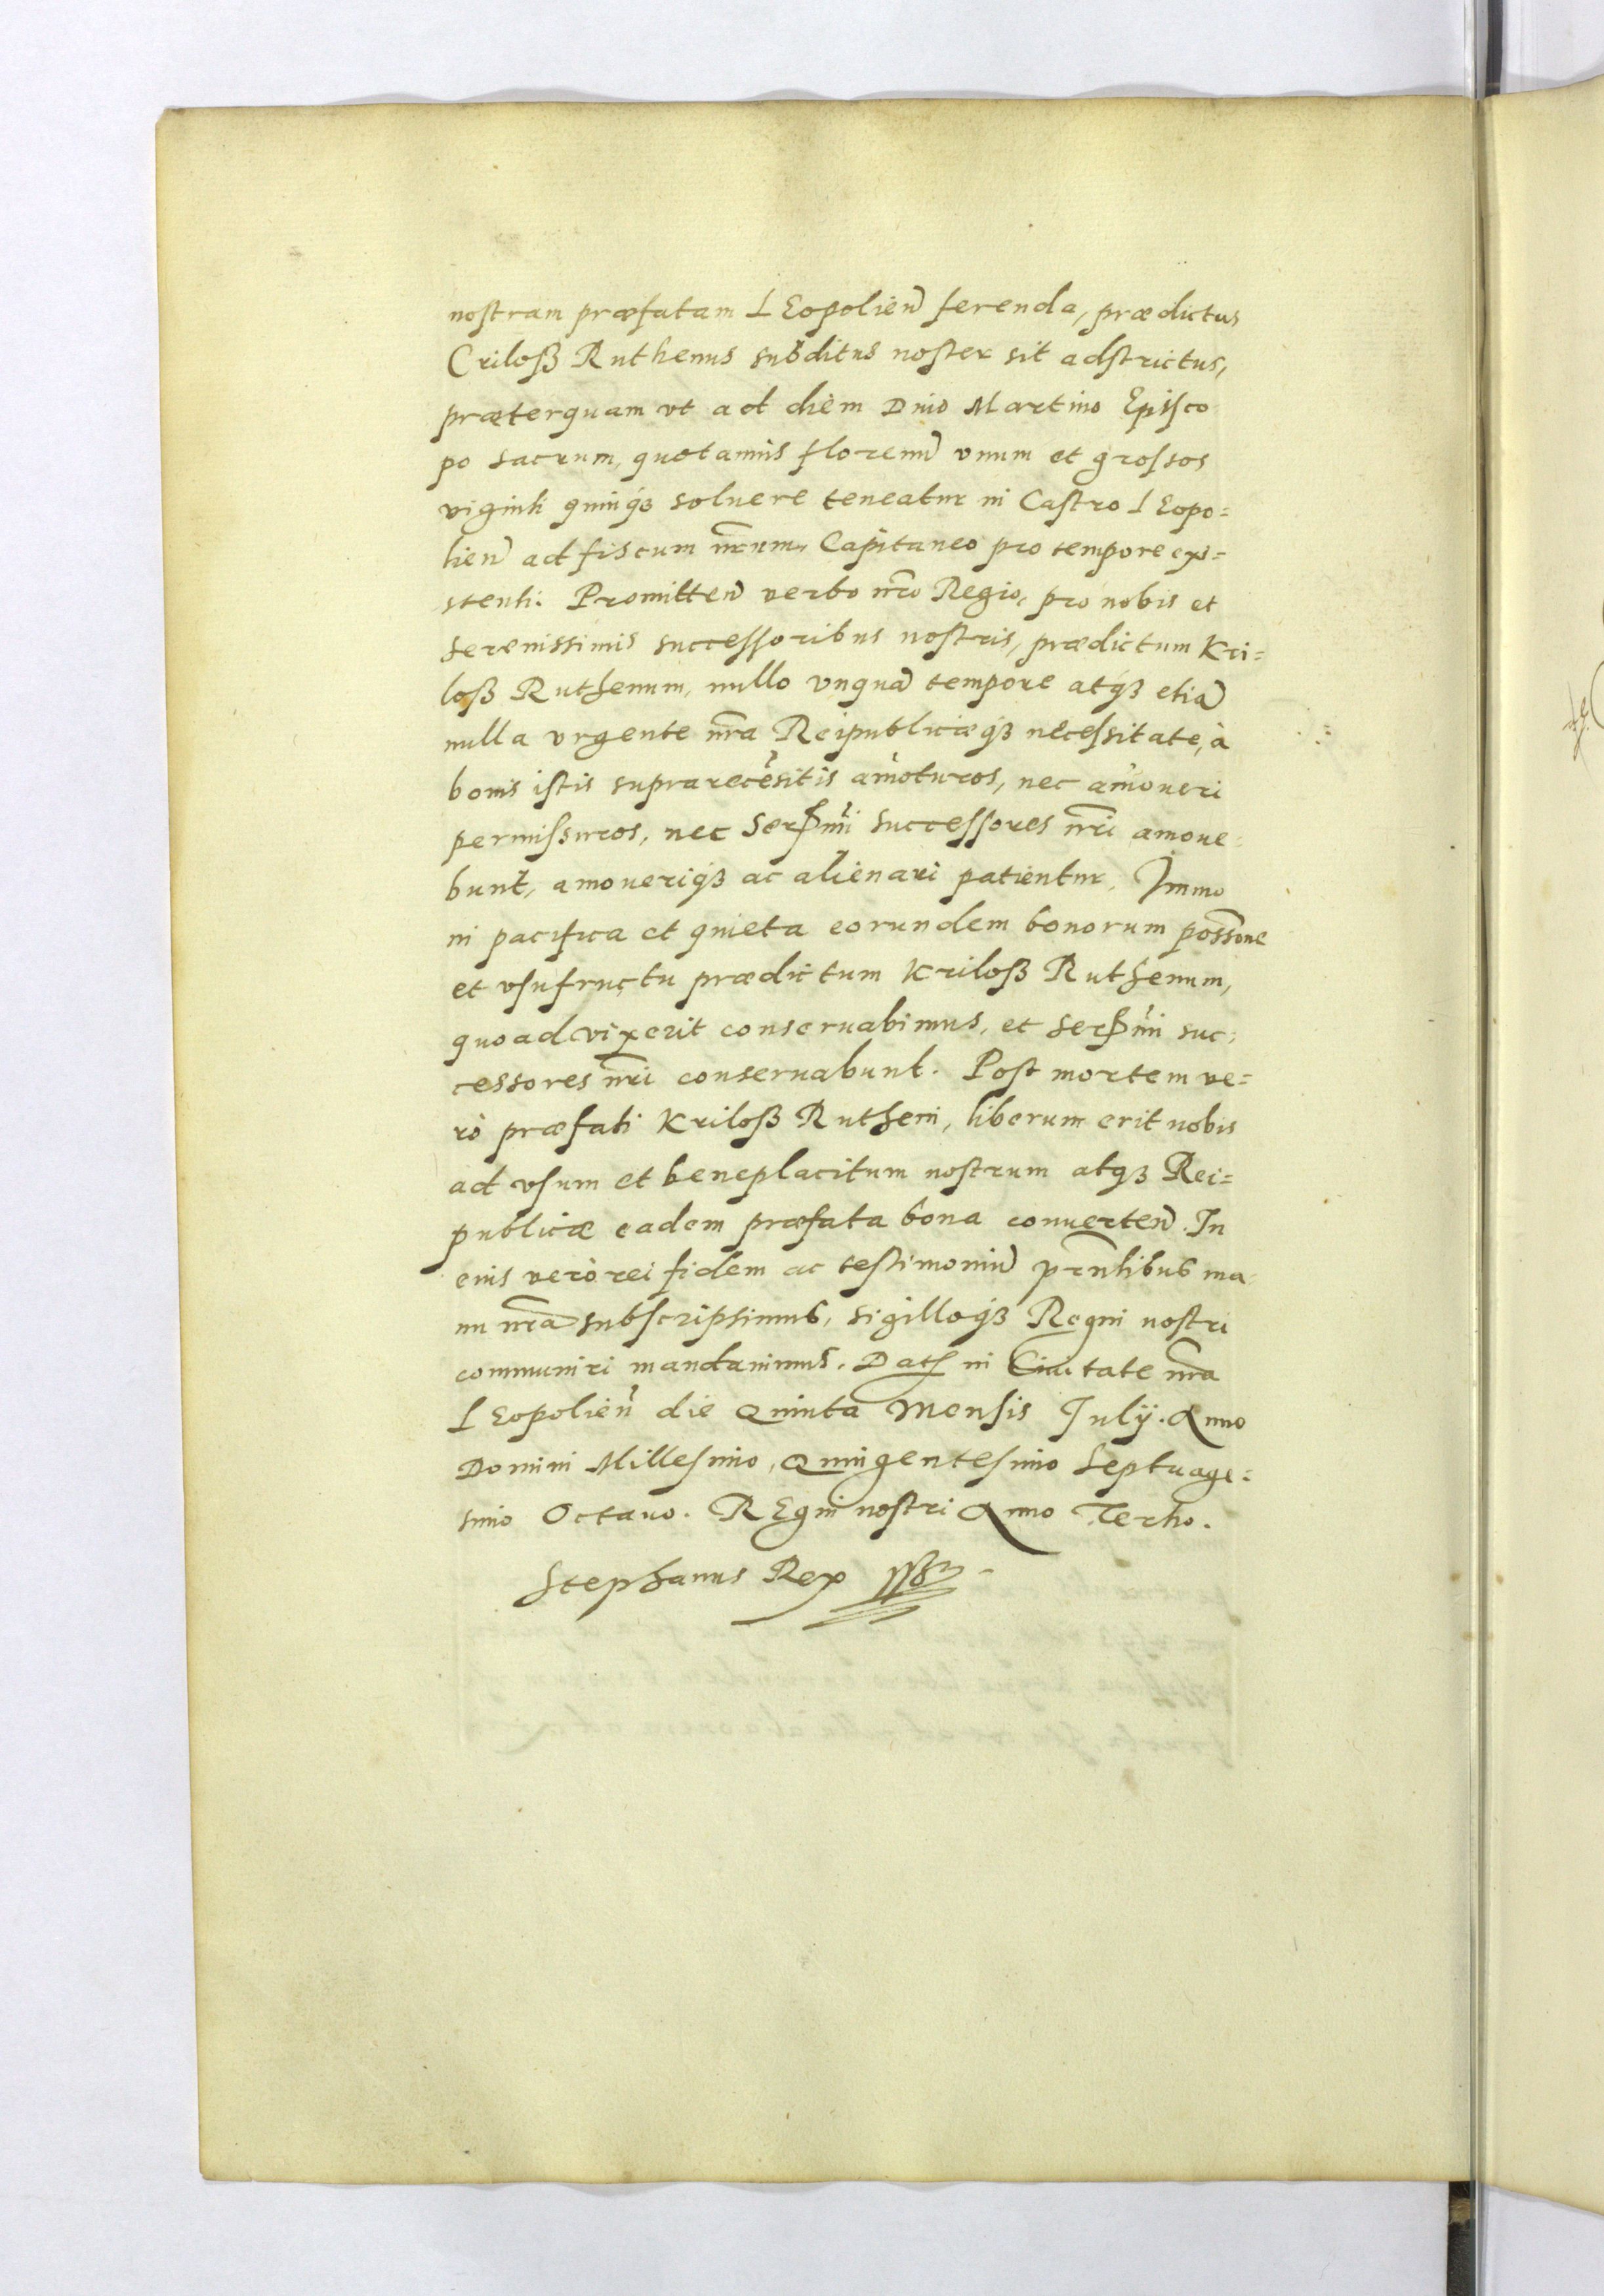 nostram præfatam LEopolień ferenda, prædictus
Criloß Ruthenus subditus noster sit adstrictus,
præterquam vt ad diem Diuo Martino Episco
po sacrum, quotannis florenũ vnum et grossos
viginti quinq́ꝫ soluere teneatur in Castro LEopo=
lień ad fiscum nr̃um, Capitaneo pro tempore exi=
stenti. Promitteń verbo nr̃o Regio, pro nobis et
serenissimis successoribus nostris, prædictum Kri=
loß Ruthenum, nullo vnquã tempore atq́ꝫ etiã
nulla vrgente nr̃a Reipublicæq́ꝫ necessitate, à
bonis istis suprarecẽsitis amoturos, nec amoueri
permissuros, nec Serẽmi successores nr̃i amoue=
bunt, amoueriq́ꝫ ac alienari patientur, Immo
in pacifica et quieta eorundem bonorum poss̃one
et vsufructu prædictum Kriloß Ruthenum,
quoad vixerit conseruabimus, et serẽmi suc=
cessores nr̃i conseruabunt. Post mortem ve=
rò præfati Kriloß Rutheni, liberum erit nobis
ad vsum et beneplacitum nostrum atq́ꝫ Rei=
publicæ eadem præfata bona conuerteń. In
eius verò rei fidem ac testimoniũ pr̃ntibus ma=
nu nr̃a subscripsimus, sigilloq́ꝫ Regni nostri
communiri mandauimus. Dat in Ciuitate nr̃a
LEopolień die Quinta Mensis Iulij. Anno
Domini Millesimo, Quingentesimo Septuage=
simo Octauo. REgni nostri Anno Tertio.
Stephanus Rex